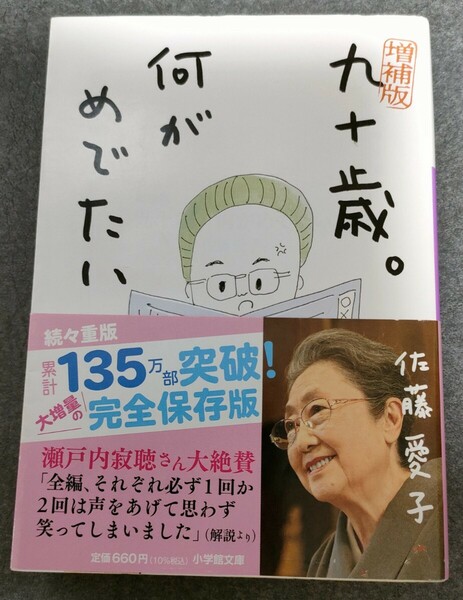 増補版
九十歳。
何が
めでたい
○×
続々重版
累計135万部突破!
大増量の完全保存版
瀬戸内寂聴さん大絶賛
「全編、それぞれ必ず1回か
2回は声をあげて思わず
笑ってしまいました」(解説より)
定価660円(10%税込) 小学館文庫
佐藤愛子